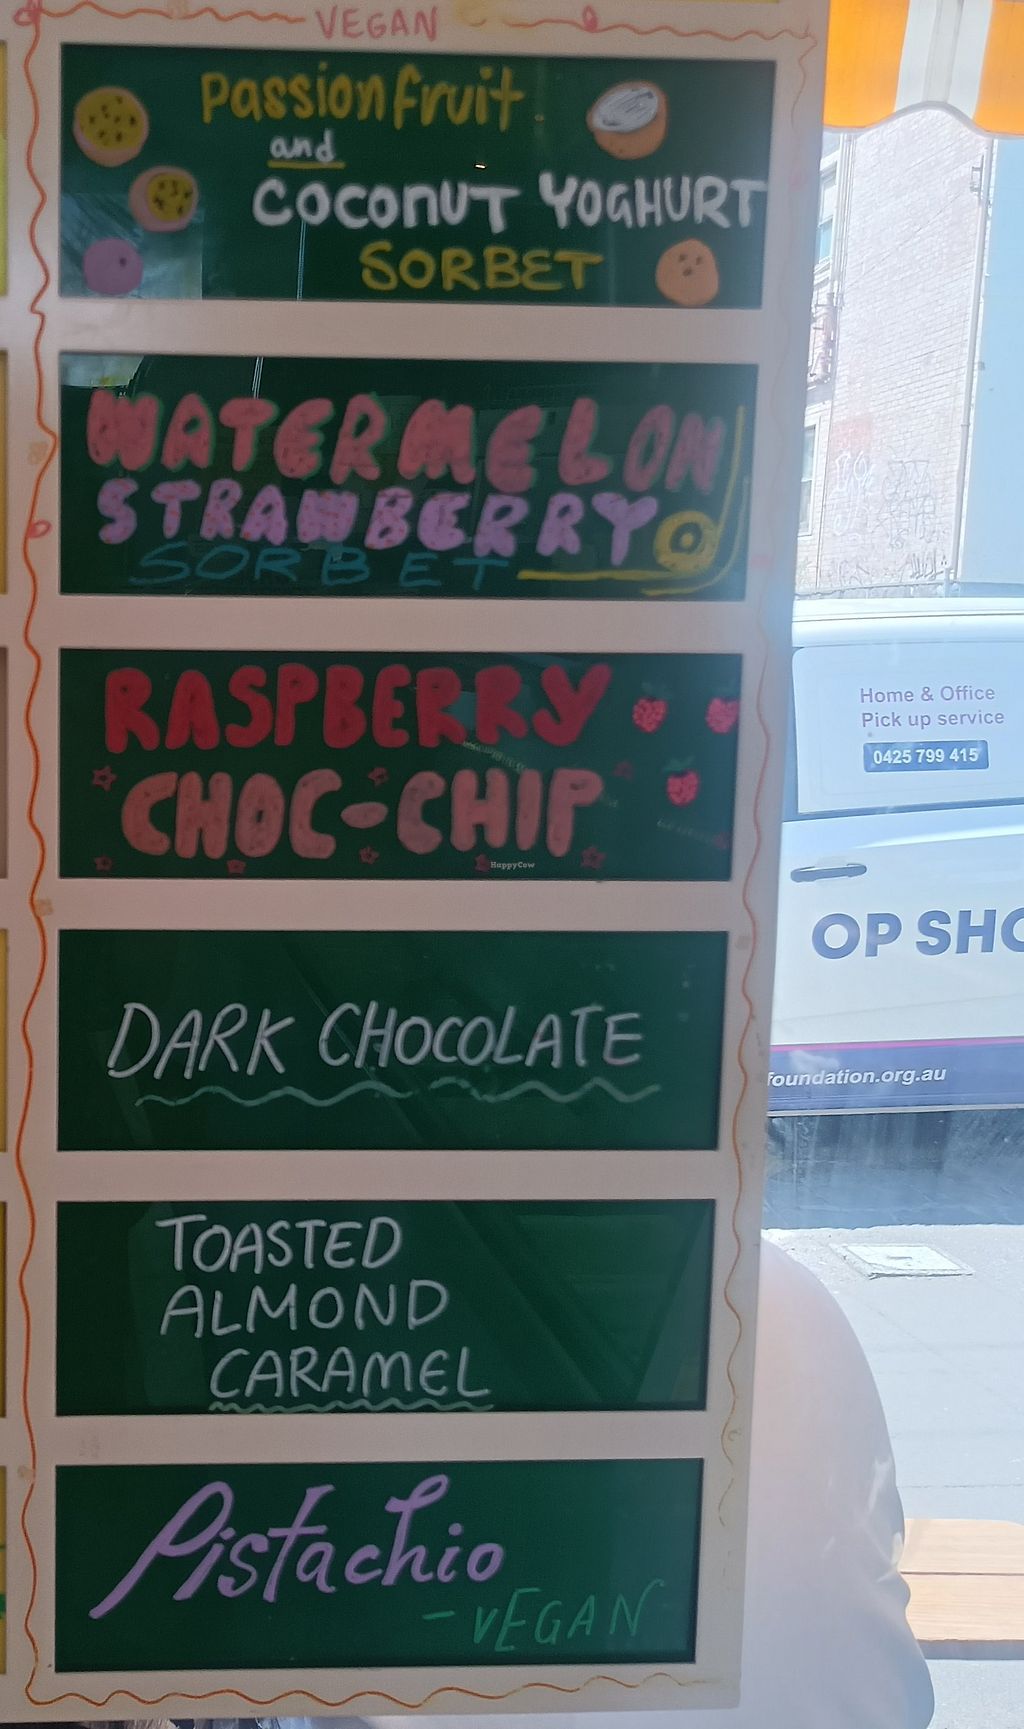 VEGAN
Passionfruit
and
COCONUT YOGHURT
SORBET
WATERMELON
STRAWBERRY
SORBET
RASPBERRY
CHOC-CHIP
HappyCow
DARK CHOCOLATE
TOASTED
ALMOND
CARAMEL
Pistachio
- VEGAN
Home & Office
Pick up service
0425 799 415
OP SHO
foundation.org.au